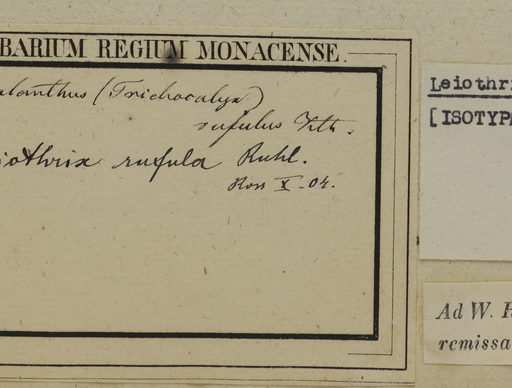 BARIUM REGIUM MONACENSE.
alanthus (Trichocalyx)
rufulus
iothrix rufula Ruhl.
Ross X. 04.
Leiothri
[ISOTYP
Ad W. R
remissa